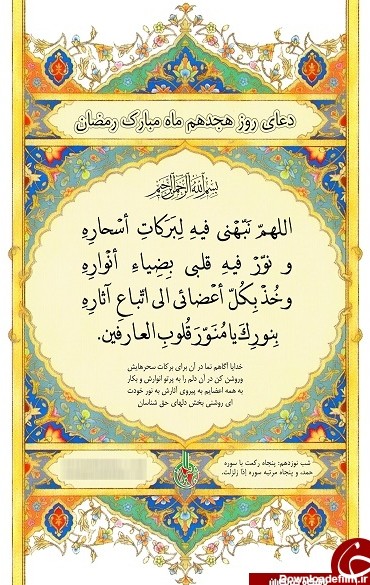 دعای روز هجدهم ماه مبارک رمضان
بسم الله الرحمن الرحیم
اللهمّ نَبّهْنی فیهِ لِبَرَکاتِ أسْحارِهِ
و نوّرْ فیه قلبی بِضِیاءِ أنْوارِهِ
وخُذْ بِکُلّ أعْضائی الی اتّباعِ آثارِهِ
بِنورِكَ یا مُنَوّرَ قُلوبِ العارفین.
خدایا آگاهم نما در آن برای برکات سحرهایش
وروشن کن در آن دلم را به پرتو انوارش و بکار
به همه اعضایم به پیروی آثارش به نور خودت
ای روشنی بخش دلهای حق شناسان
شب نوزدهم: پنجاه رکعت با سوره
حمد، و پنجاه مرتبه سوره إذا زلزلت.
Downloadefilm.ir